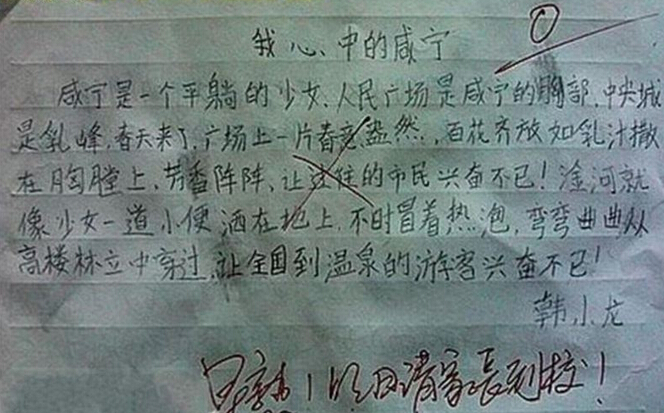 0
我心中的咸宁
咸宁是一个平躺的少女、人民广场是咸宁的胸部、中央城
是乳峰,春天来了,广场上一片春意盎然,百花齐放如乳汁撒
在胸膛上、芳香阵阵、让过往的市民兴奋不已!淦河就
像少女一道小便洒在地上,不时冒着热泡,弯弯曲曲从
高楼林立中穿过,让全国到温泉的游客兴奋不已!
韩小龙
早熟!明日请家长到校!